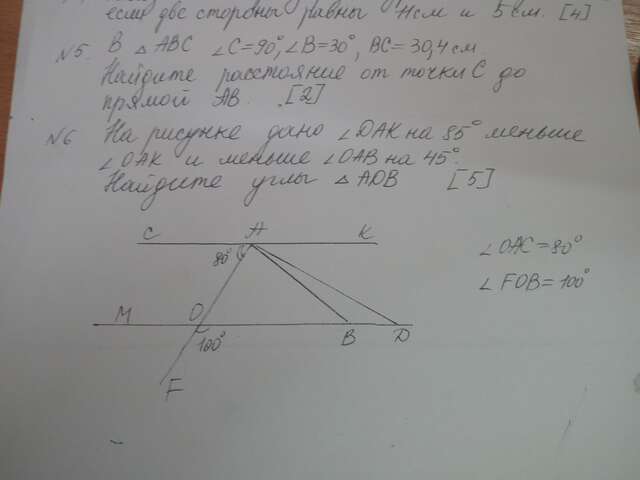 если две стороны равны 11см и 5 см. [4]
№5. В △ ABC ∠C=90°, ∠B=30°, BC=30,4см.
Найдите расстояние от точки С до
прямой AB. [2]
№6 На рисунке дано ∠DAK на 85° меньше
∠OAK и меньше ∠OAB на 45°.
Найдите углы △ ADB [5]
C A K
80°
∠OAC=80°
∠FOB=100°
M O B D
100°
F